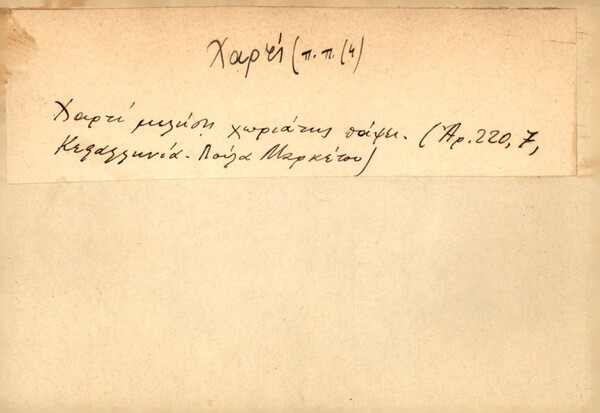 Χαρτί (π.π. (4)
Χαρτί μιλήση χωριάτης πάψε. (Ἀρ. 220, 7,
Κεφαλληνία. Λούλα Μαρκέτου)